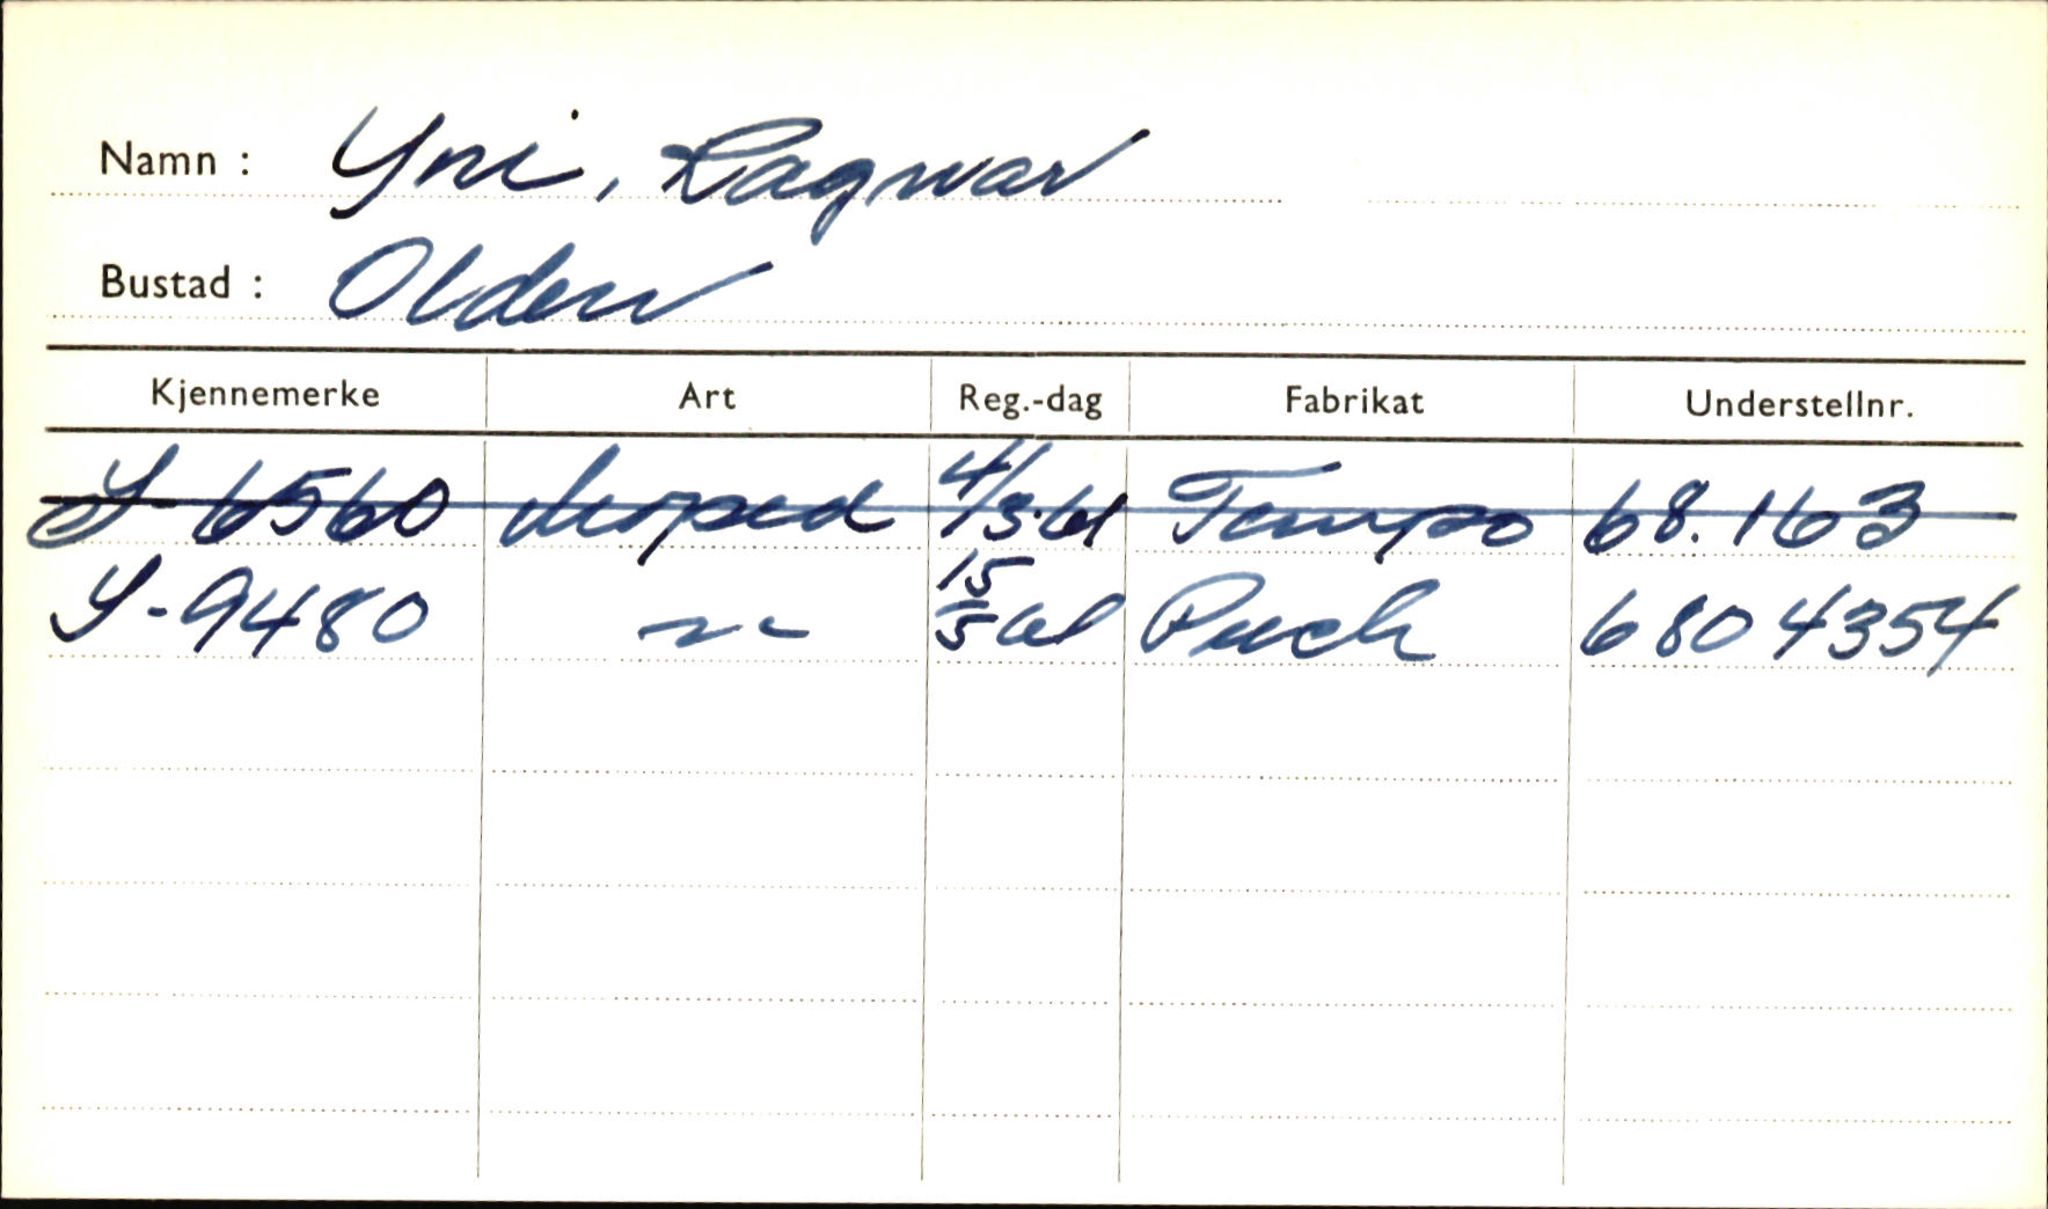 Namn : Yri, Ragnar
Bustad : Olden
Kjennemerke Art Reg.-dag Fabrikat Understellnr.
S-6560 Moped 4/3-61 Tempo 68.163
S-9480 -"- 15/5 61 Puch 6804354